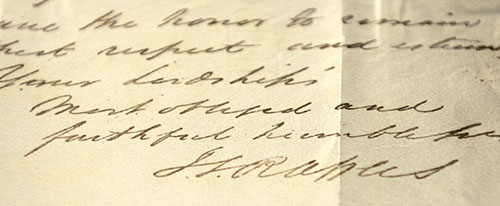 the honor to remain
respect and esteem
Your Lordship's
Most obliged and
faithful humble
T S Raffles